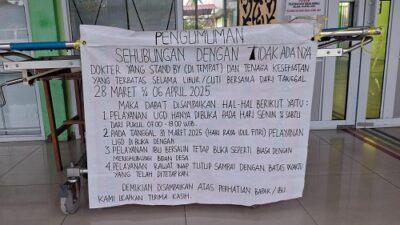 PENGUMUMAN
SEHUBUNGAN DENGAN TIDAK ADANYA
DOKTER YANG STAND BY (DI TEMPAT) DAN TENAGA KESEHATAN
YANG TERBATAS SELAMA LIBUR/CUTI BERSAMA DARI TANGGAL
28 MARET % 06 APRIL 2025
MAKA DAPAT DISAMPAIKAN HAL-HAL BERIKUT YAITU :
1. PELAYANAN UGD HANYA DIBUKA PADA HARI SENIN % SABTU
DARI PUKUL 07.00 - 18.00 WIB.
2. PADA TANGGAL 31 MARET 2025 (HARI RAYA IDUL FITRI) PELAYANAN
UGD DI BUKA DENGAN
3. PELAYANAN IBU BERSALIN TETAP BUKA SEPERTI BIASA DENGAN
MENGHUBUNGI BIDAN DESA.
4. PELAYANAN RAWAT INAP TUTUP SAMPAI DENGAN BATAS WAKTU
YANG TELAH DITETAPKAN.
DEMIKIAN DISAMPAIKAN ATAS PERHATIAN BAPAK / IBU
KAMI UCAPKAN TERIMA KASIH.